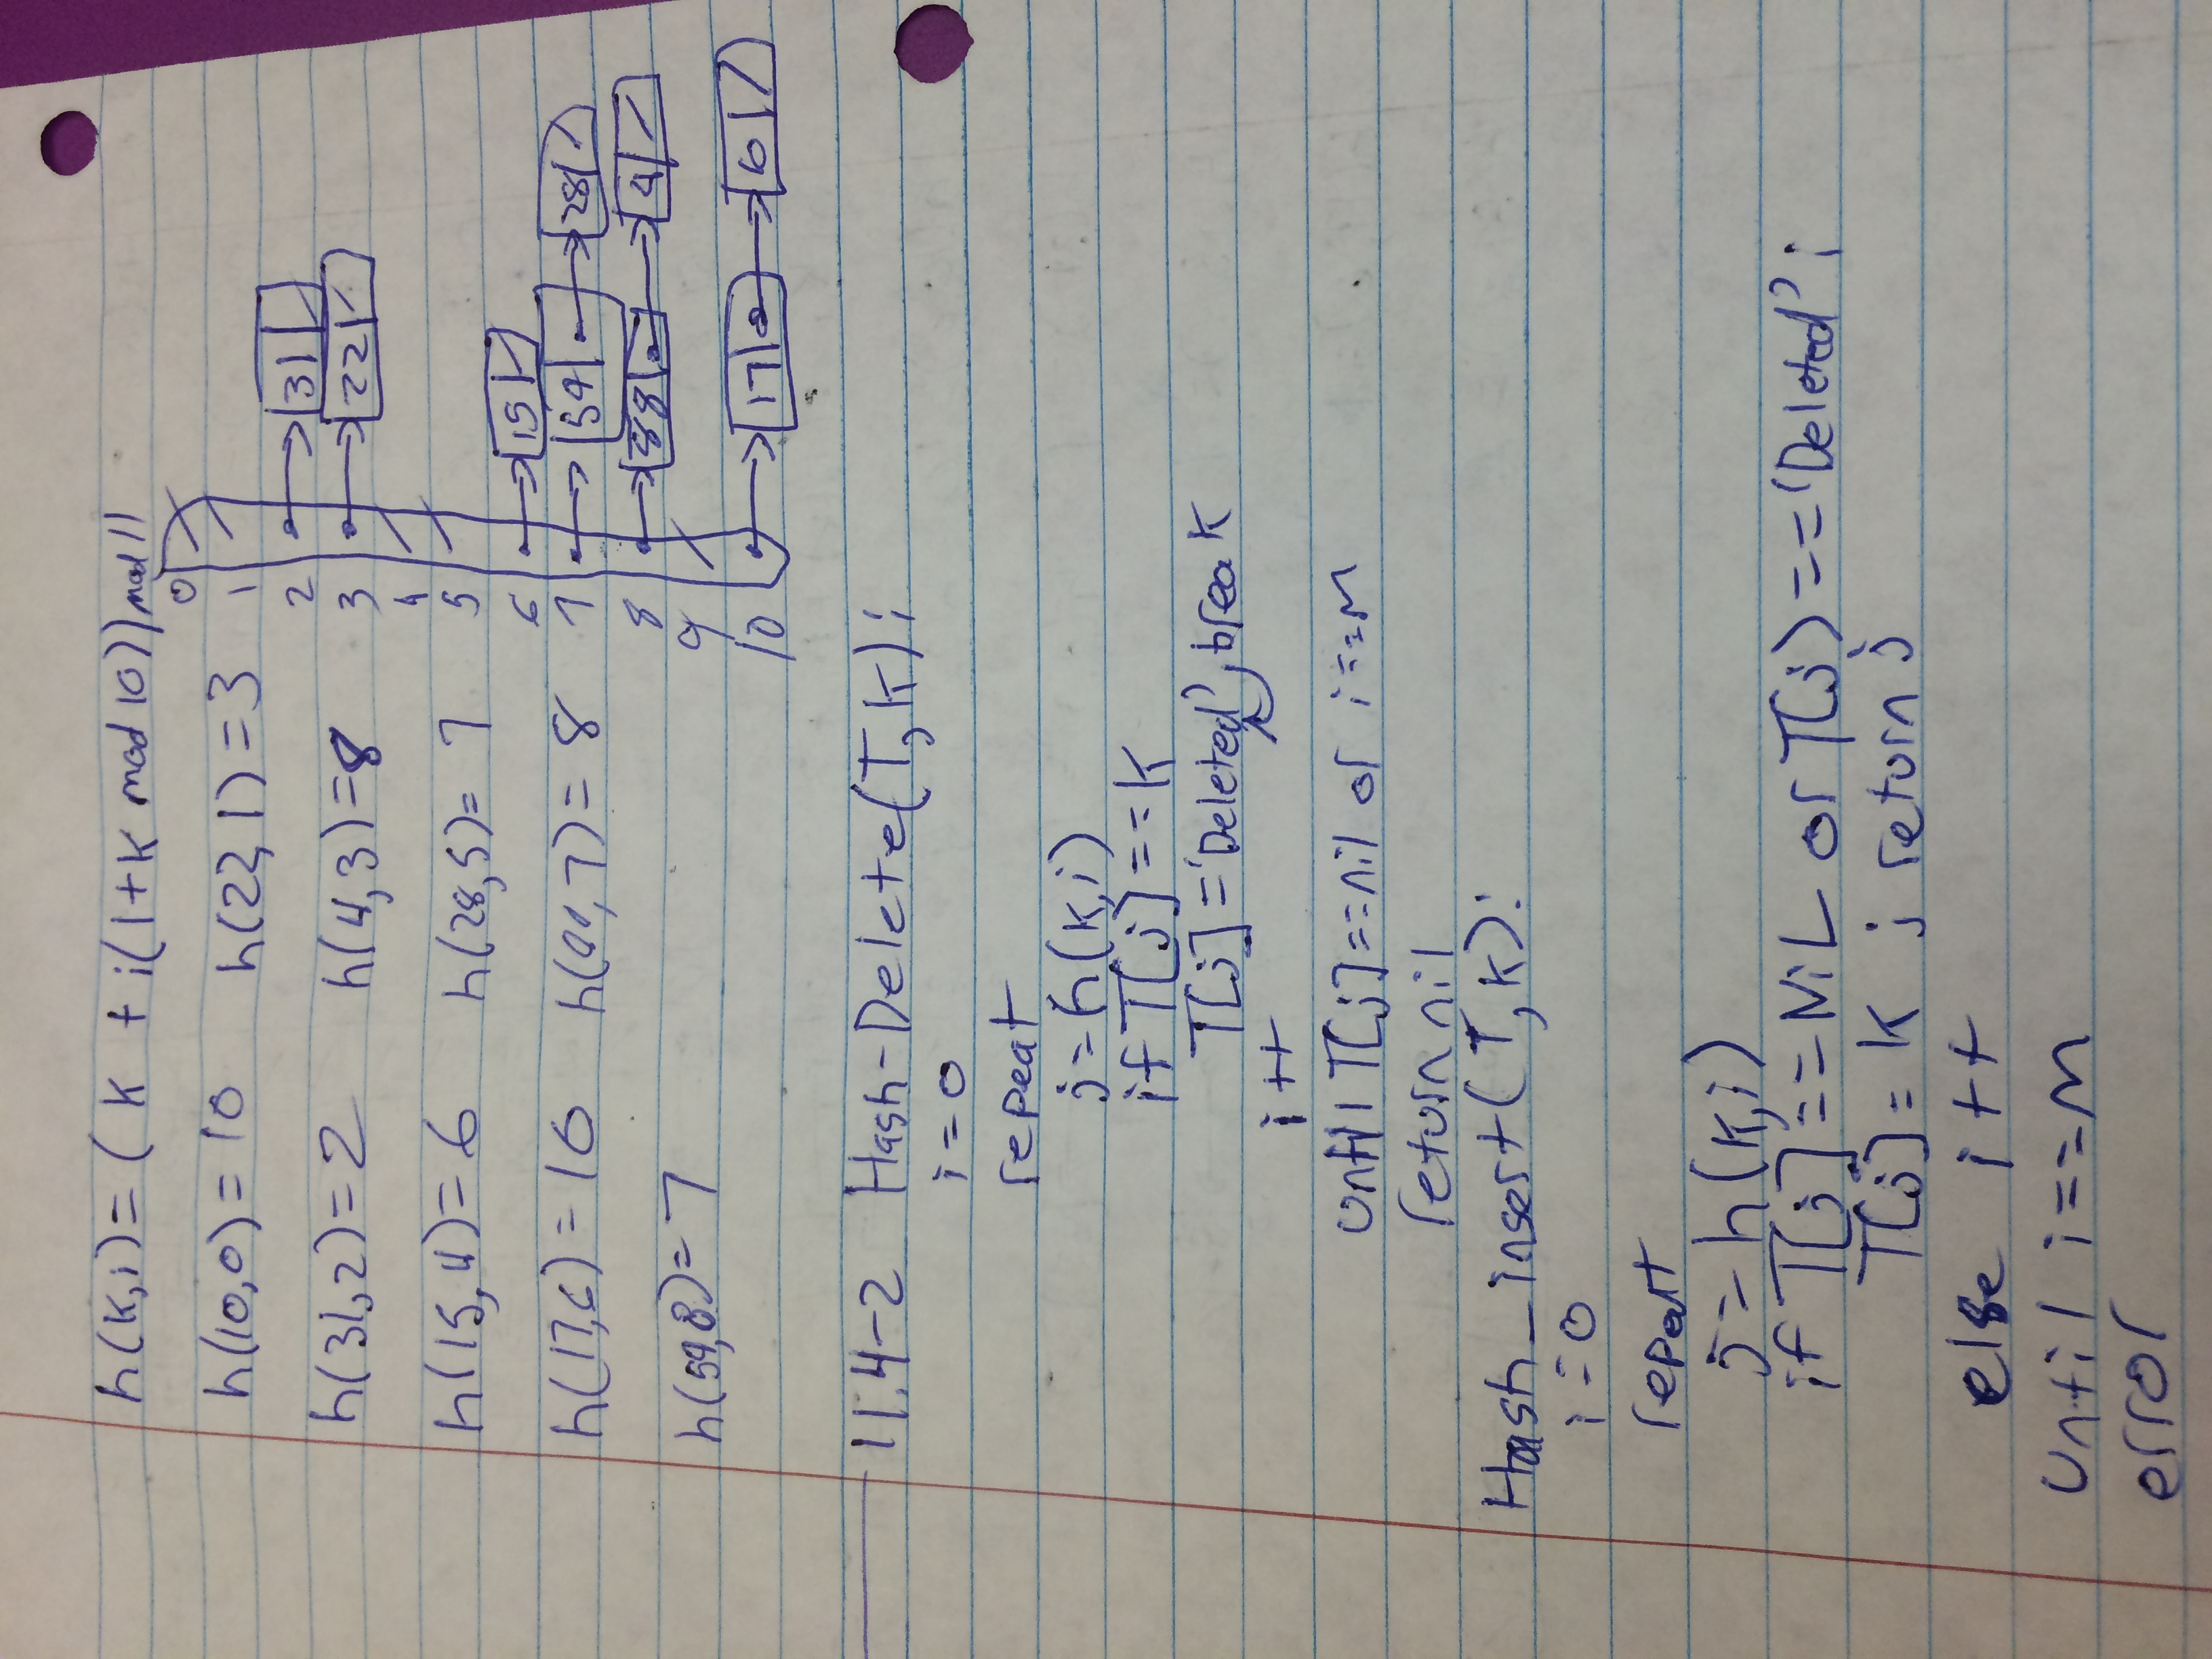 h(k,i)=( k + i(1+k mod 10)) mod 11
h(10,0)=10 h(22,1)=3
h(31,2)=2 h(4,3)=8
h(15,4)=6 h(28,5)=7
h(17,6)=10 h( ,7)=8
h(59,8)=7
0
1
2 31
3 22
4
5
6 15
7 59 28
8 88 4
9
10 17 10
11.4-2 Hash-Delete(T,k):
i=0
repeat
j=h(k,i)
if T[j]==k
T[j]='Deleted', break
i++
until T[j]==nil or i==m
return nil
Hash_insert(T,k):
i=0
repeat
j=h(k,i)
if T[j]==NiL or T[j)=='Deleted':
T[j]=k ; return j
else i++
until i==m
error